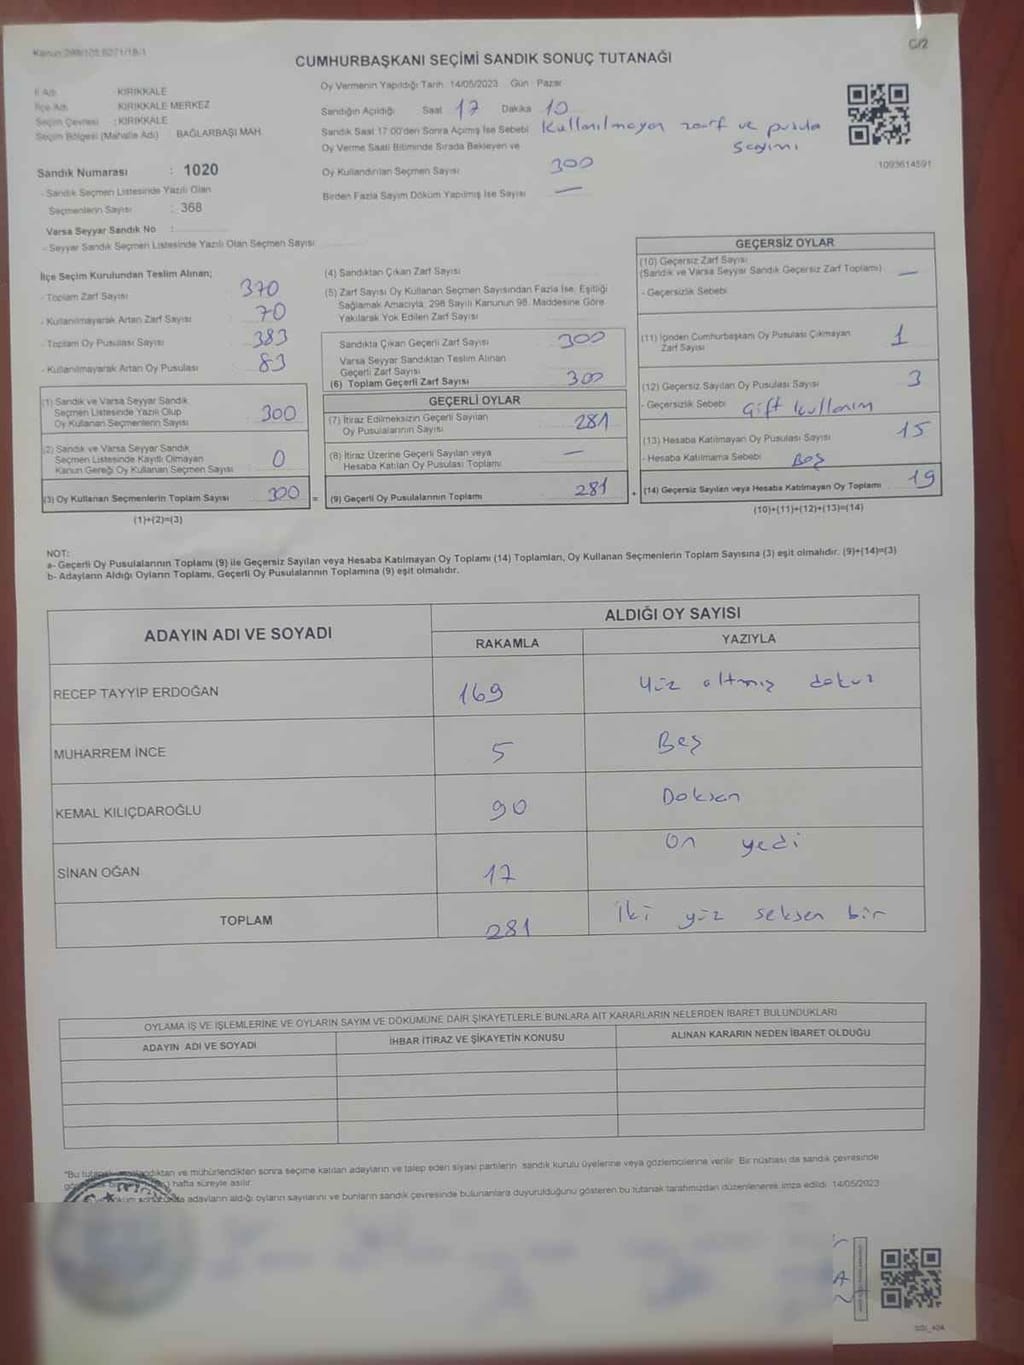 Kanun:298/105,6271/18/1
C/2
CUMHURBAŞKANI SEÇİMİ SANDIK SONUÇ TUTANAĞI
İl Adı : KIRIKKALE
İlçe Adı : KIRIKKALE MERKEZ
Seçim Çevresi : KIRIKKALE
Seçim Bölgesi (Mahalle Adı) : BAĞLARBAŞI MAH.
Sandık Numarası : 1020
- Sandık Seçmen Listesinde Yazılı Olan
Seçmenlerin Sayısı : 368
Varsa Seyyar Sandık No :
- Seyyar Sandık Seçmen Listesinde Yazılı Olan Seçmen Sayısı
Oy Vermenin Yapıldığı Tarih: 14/05/2023 Gün : Pazar
Sandığın Açıldığı Saat 17 Dakika 10
Sandık Saat 17:00'den Sonra Açımış İse Sebebi Kullanılmayan zarf ve pusula
sayımı
Oy Verme Saati Bitiminde Sırada Bekleyen ve
Oy Kullandırılan Seçmen Sayısı 300
Birden Fazla Sayım Döküm Yapılmış İse Sayısı —
1093614591
İlçe Seçim Kurulundan Teslim Alınan;
- Toplam Zarf Sayısı 370
- Kullanılmayarak Artan Zarf Sayısı 70
- Toplam Oy Pusulası Sayısı 383
- Kullanılmayarak Artan Oy Pusulası 83
(1) Sandık ve Varsa Seyyar Sandık
Seçmen Listesinde Yazılı Olup
Oy Kullanan Seçmenlerin Sayısı 300
(2) Sandık ve Varsa Seyyar Sandık
Seçmen Listesinde Kayıtlı Olmayan
Kanun Gereği Oy Kullanan Seçmen Sayısı 0
(3) Oy Kullanan Seçmenlerin Toplam Sayısı 300
(1)+(2)=(3)
(4) Sandıktan Çıkan Zarf Sayısı
(5) Zarf Sayısı Oy Kullanan Seçmen Sayısından Fazla İse, Eşitliği
Sağlamak Amacıyla, 298 Sayılı Kanunun 98. Maddesine Göre
Yakılarak Yok Edilen Zarf Sayısı
Sandıkta Çıkan Geçerli Zarf Sayısı 300
Varsa Seyyar Sandıktan Teslim Alınan
Geçerli Zarf Sayısı
(6) Toplam Geçerli Zarf Sayısı 300
GEÇERLİ OYLAR
(7) İtiraz Edilmeksizin Geçerli Sayılan
Oy Pusulalarının Sayısı 281
(8) İtiraz Üzerine Geçerli Sayılan veya
Hesaba Katılan Oy Pusulası Toplamı —
= (9) Geçerli Oy Pusulalarının Toplamı 281
GEÇERSİZ OYLAR
(10) Geçersiz Zarf Sayısı
(Sandık ve Varsa Seyyar Sandık Geçersiz Zarf Toplamı) —
- Geçersizlik Sebebi
(11) İçinden Cumhurbaşkanı Oy Pusulası Çıkmayan
Zarf Sayısı 1
(12) Geçersiz Sayılan Oy Pusulası Sayısı 3
- Geçersizlik Sebebi Çift kullanım
(13) Hesaba Katılmayan Oy Pusulası Sayısı 15
- Hesaba Katılmama Sebebi Boş
+ (14) Geçersiz Sayılan veya Hesaba Katılmayan Oy Toplamı 19
(10)+(11)+(12)+(13)=(14)
NOT:
a- Geçerli Oy Pusulalarının Toplamı (9) ile Geçersiz Sayılan veya Hesaba Katılmayan Oy Toplamı (14) Toplamları, Oy Kullanan Seçmenlerin Toplam Sayısına (3) eşit olmalıdır. (9)+(14)=(3)
b- Adayların Aldığı Oyların Toplamı, Geçerli Oy Pusulalarının Toplamına (9) eşit olmalıdır.
ADAYIN ADI VE SOYADI
ALDIĞI OY SAYISI
RAKAMLA YAZIYLA
RECEP TAYYİP ERDOĞAN 169 Yüz altmış dokuz
MUHARREM İNCE 5 Beş
KEMAL KILIÇDAROĞLU 90 Doksan
SİNAN OĞAN 17 On yedi
TOPLAM 281 İki yüz seksen bir
OYLAMA İŞ VE İŞLEMLERİNE VE OYLARIN SAYIM VE DÖKÜMÜNE DAİR ŞİKAYETLERLE BUNLARA AİT KARARLARIN NELERDEN İBARET BULUNDUKLARI
ADAYIN ADI VE SOYADI İHBAR İTİRAZ VE ŞİKAYETİN KONUSU ALINAN KARARIN NEDEN İBARET OLDUĞU
"Bu ve mühürlendikten sonra seçime katılan adayların ve talep eden siyasi partilerin sandık kurulu üyelerine veya gözlemcilerine verilir. Bir nüshası da sandık çevresinde
hafta süreyle asılır.
adayların aldığı oyların sayılarını ve bunların sandık çevresinde bulunanlara duyurulduğunu gösteren bu tutanak tarafımızdan düzenlenerek imza edildi. 14/05/2023